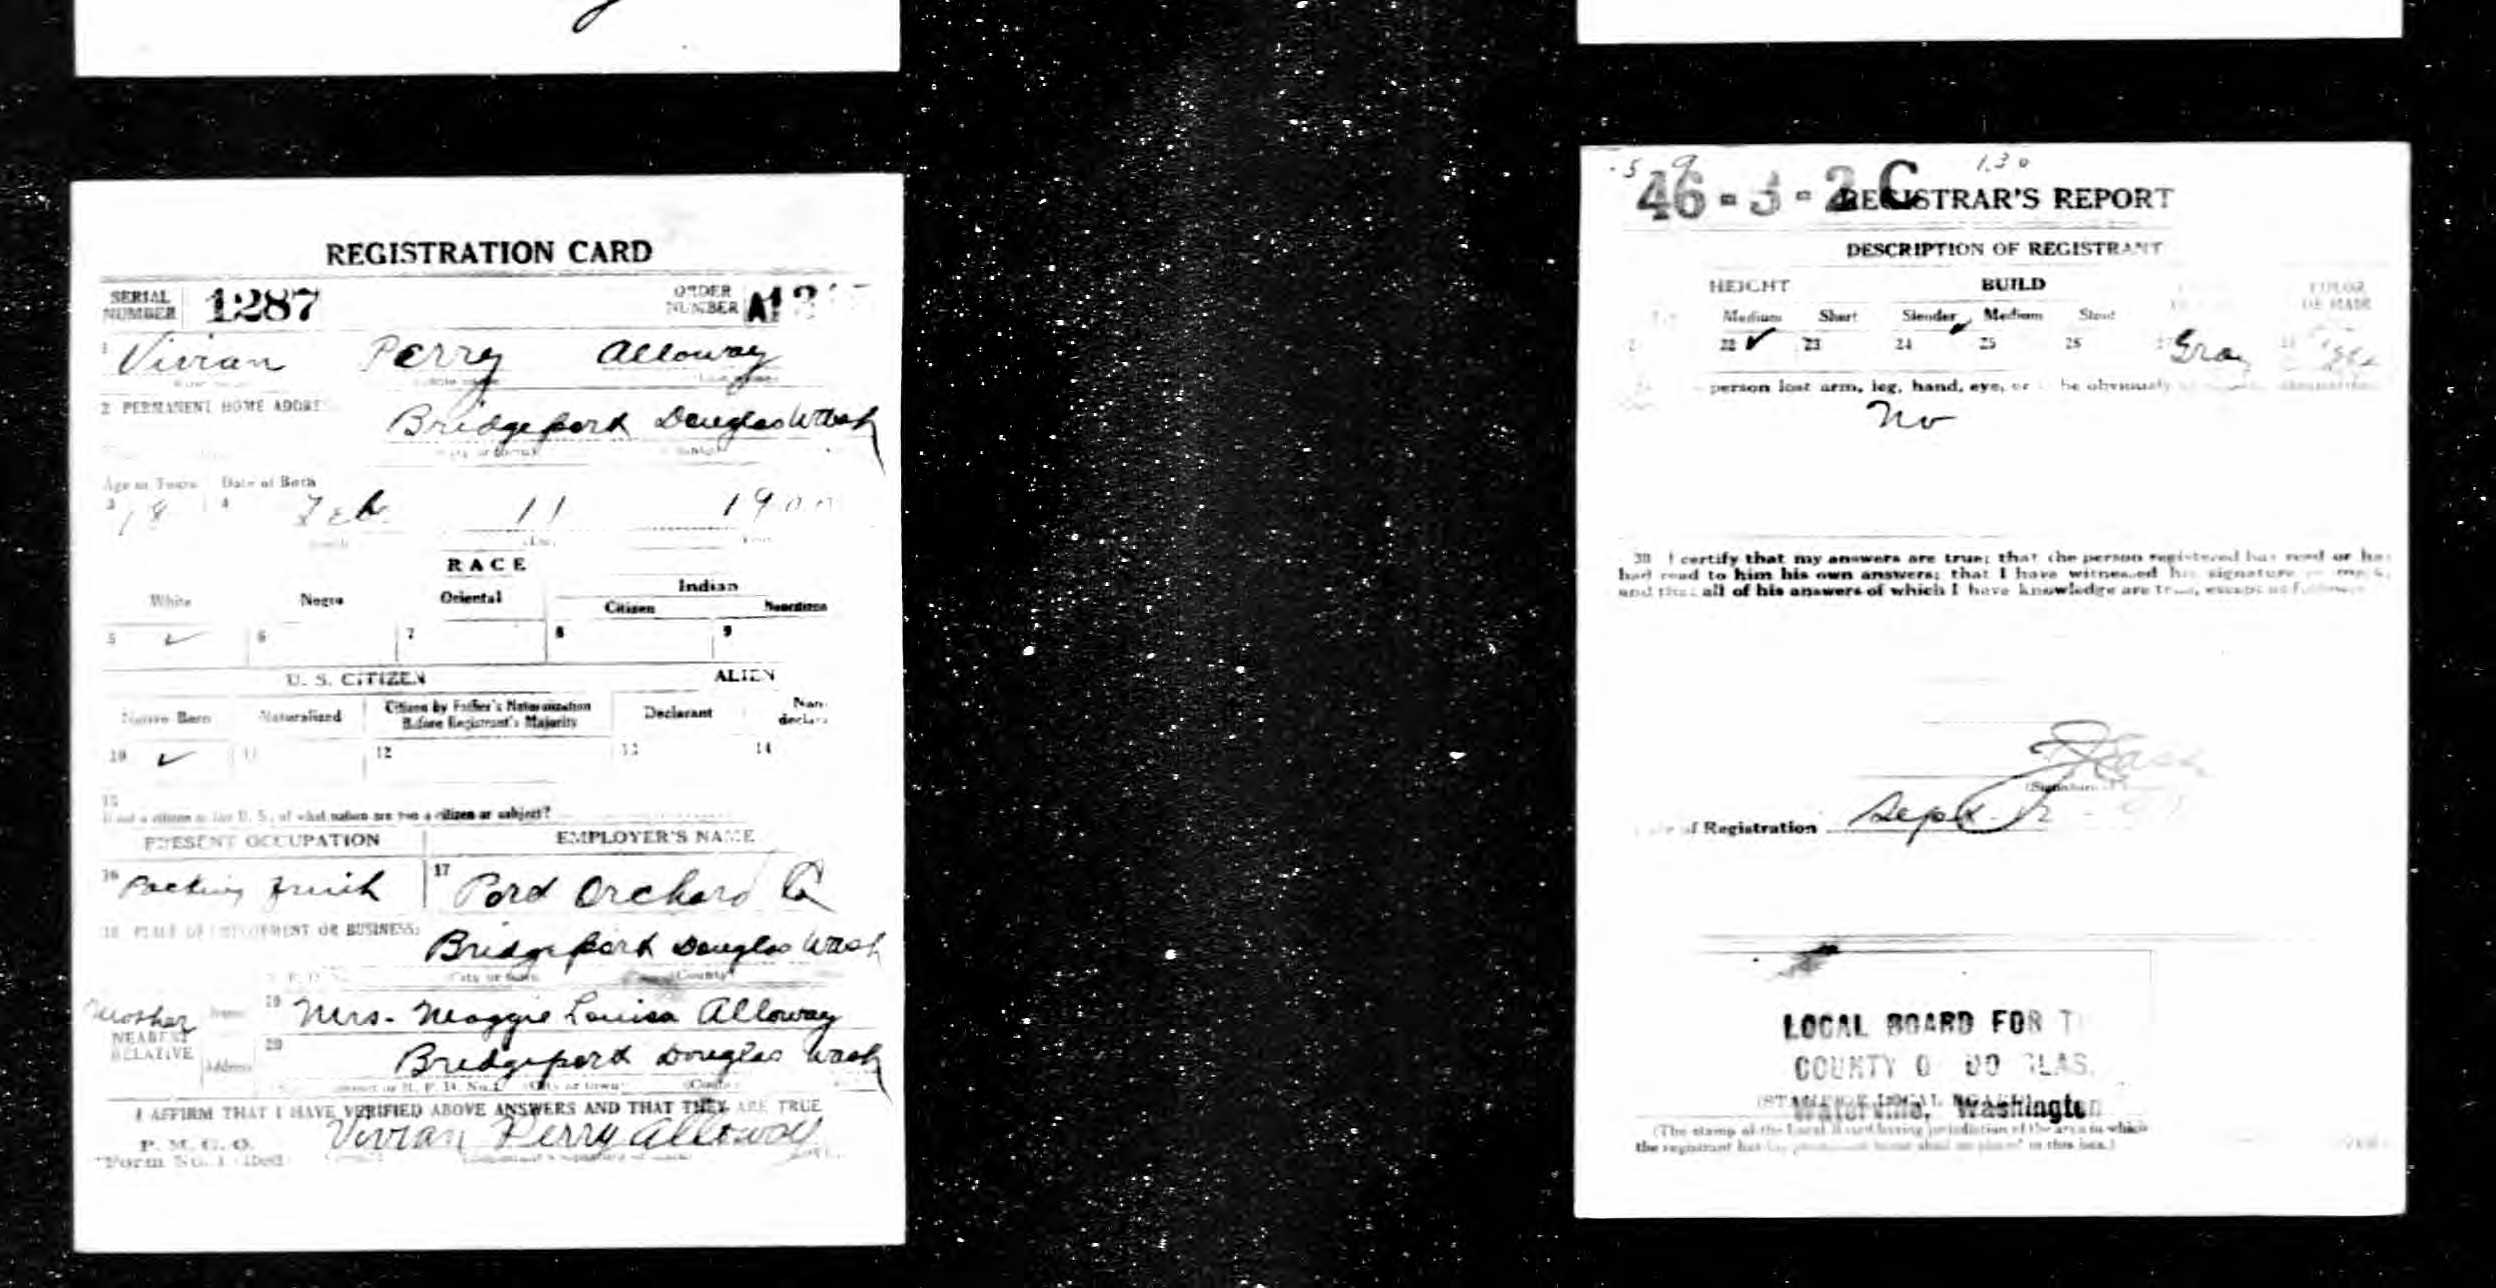 REGISTRATION CARD
SERIAL NUMBER 1287 ORDER NUMBER
1 Vivian Perry Alloway
2 PERMANENT HOME ADDRESS
Bridgeport Douglas Wash
Age in Years Date of Birth
3 18 4 Feb. 11 1900
RACE
White Negro Oriental Indian
Citizen Noncitizen
5 ✓ 6 7 8 9
U. S. CITIZEN ALIEN
Native Born Naturalized Citizen by Father's Naturalization Before Registrant's Majority Declarant Non-declarant
10 ✓ 11 12 13 14
15
If not a citizen of the U. S., of what nation are you a citizen or subject?
PRESENT OCCUPATION EMPLOYER'S NAME
16 Packing Fruit 17 Orchard Co
18 PLACE OF EMPLOYMENT OR BUSINESS:
Bridgeport Douglas Wash
Mother 19 Mrs. Maggie Louisa Alloway
NEAREST RELATIVE Address 20 Bridgeport Douglas Wash
I AFFIRM THAT I HAVE VERIFIED ABOVE ANSWERS AND THAT THEY ARE TRUE
P. M. G. O.
Form No. 1 (Red) Vivian Perry Alloway
46-3-2 C
REGISTRAR'S REPORT
DESCRIPTION OF REGISTRANT
HEIGHT BUILD COLOR OF HAIR
Medium Short Slender Medium Stout
22 ✓ 23 24 ✓ 25 26 Gray
person lost arm, leg, hand, eye, or be obviously
No
30 I certify that my answers are true; that the person registered has read or has
had read to him his own answers; that I have witnessed his signature or mark,
and that all of his answers of which I have knowledge are true, except as follows:
Date of Registration Sept. 12
LOCAL BOARD FOR
COUNTY OF DOUGLAS,
Waterville, Washington
(STAMP OF LOCAL BOARD)
(The stamp of the Local Board having jurisdiction of the area in which
the registrant has his permanent home shall be placed in this box.)